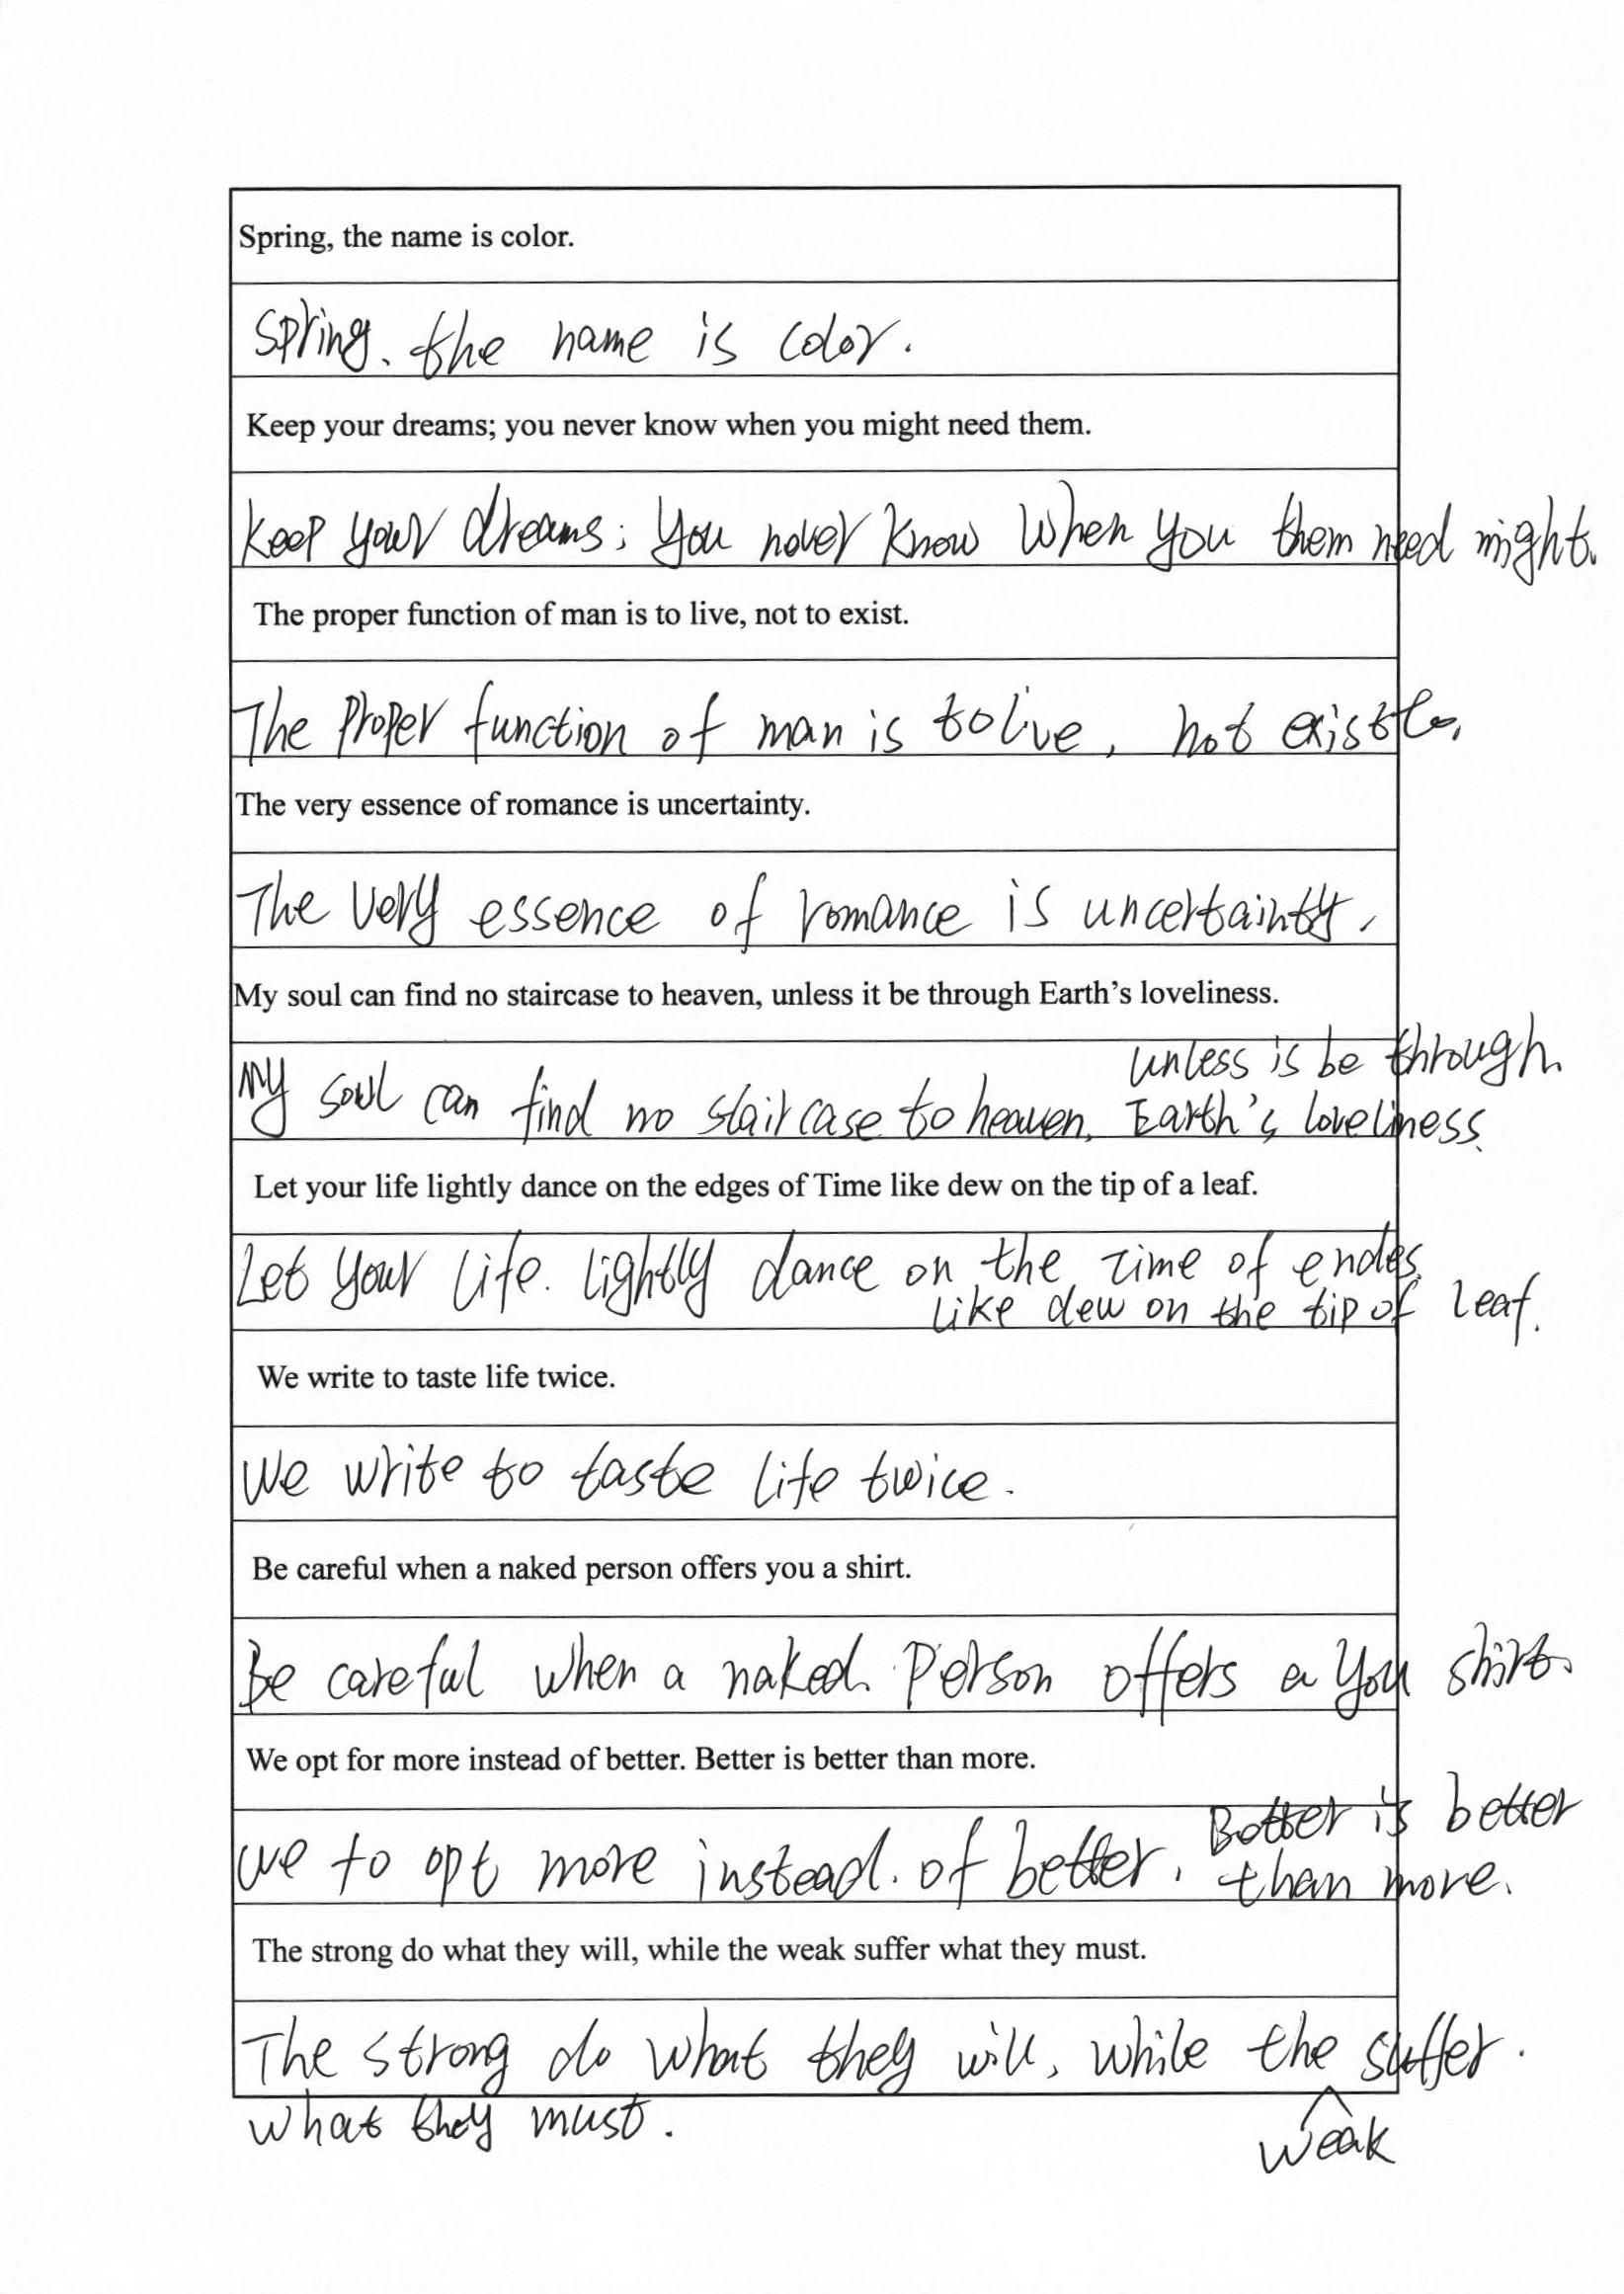 Spring, the name is color.
Spring. the name is color.
Keep your dreams; you never know when you might need them.
Keep your dreams; you never know when you them need might.
The proper function of man is to live, not to exist.
The proper function of man is to live, not exist to.
The very essence of romance is uncertainty.
The very essence of romance is uncertainty.
My soul can find no staircase to heaven, unless it be through Earth's loveliness.
My soul can find no staircase to heaven, unless is be through
Earth's loveliness.
Let your life lightly dance on the edges of Time like dew on the tip of a leaf.
Let your life. lightly dance on the Time of endes
like dew on the tip of leaf.
We write to taste life twice.
We write to taste life twice.
Be careful when a naked person offers you a shirt.
Be careful when a naked person offers a you shirt.
We opt for more instead of better. Better is better than more.
we to opt more instead. of better. Better is better
than more.
The strong do what they will, while the weak suffer what they must.
The strong do what they will, while the suffer.
what they must. weak